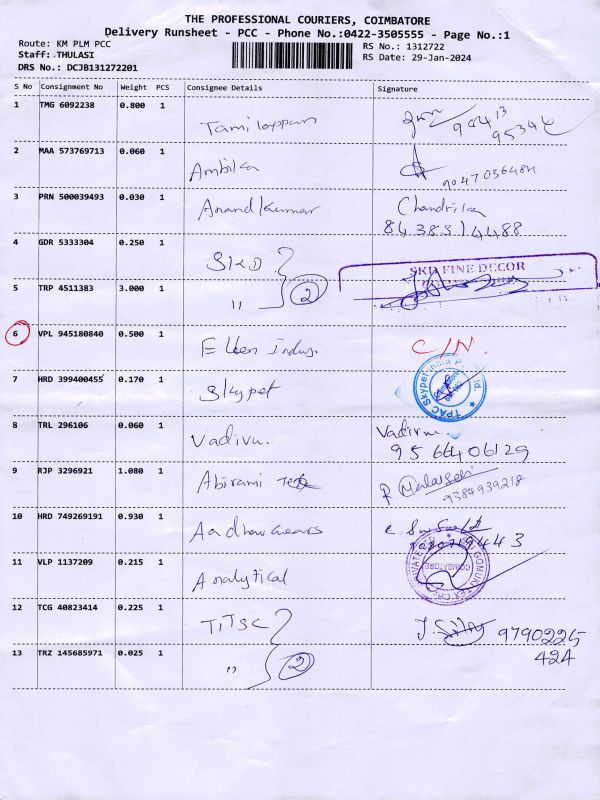 THE PROFESSIONAL COURIERS, COIMBATORE
Delivery Runsheet - PCC - Phone No.:0422-3505555 - Page No.:1
Route: KM PLM PCC RS No.: 1312722
Staff: THULASI RS Date: 29-Jan-2024
DRS No.: DCJB131272201
S No Consignment No Weight PCS Consignee Details Signature
1 TMG 6092238 0.800 1 Tamilappan
2 MAA 573769713 0.060 1 Ambika
3 PRN 500039493 0.030 1 Anand kumar Chandrika
8438514488
4 GDR 5333304 0.250 1 SKD
SKD FINE DECOR
5 TRP 4511383 3.000 1 " 2
6 VPL 945180840 0.500 1 Elken indus. C/N.
7 HRD 399400455 0.170 1 Skypet
TPAC Skypet India P. Ltd.
8 TRL 296106 0.060 1 Vadivu. Vadivu.
9566406129
9 RJP 3296921 1.080 1 Abirami Tex
9384939218
10 HRD 749269191 0.930 1 Aadhav Gears
11 VLP 1137209 0.215 1 Analytical
COIMBATORE
12 TCG 40823414 0.225 1 TITSC 9790225
424
13 TRZ 145685971 0.025 1 " 2